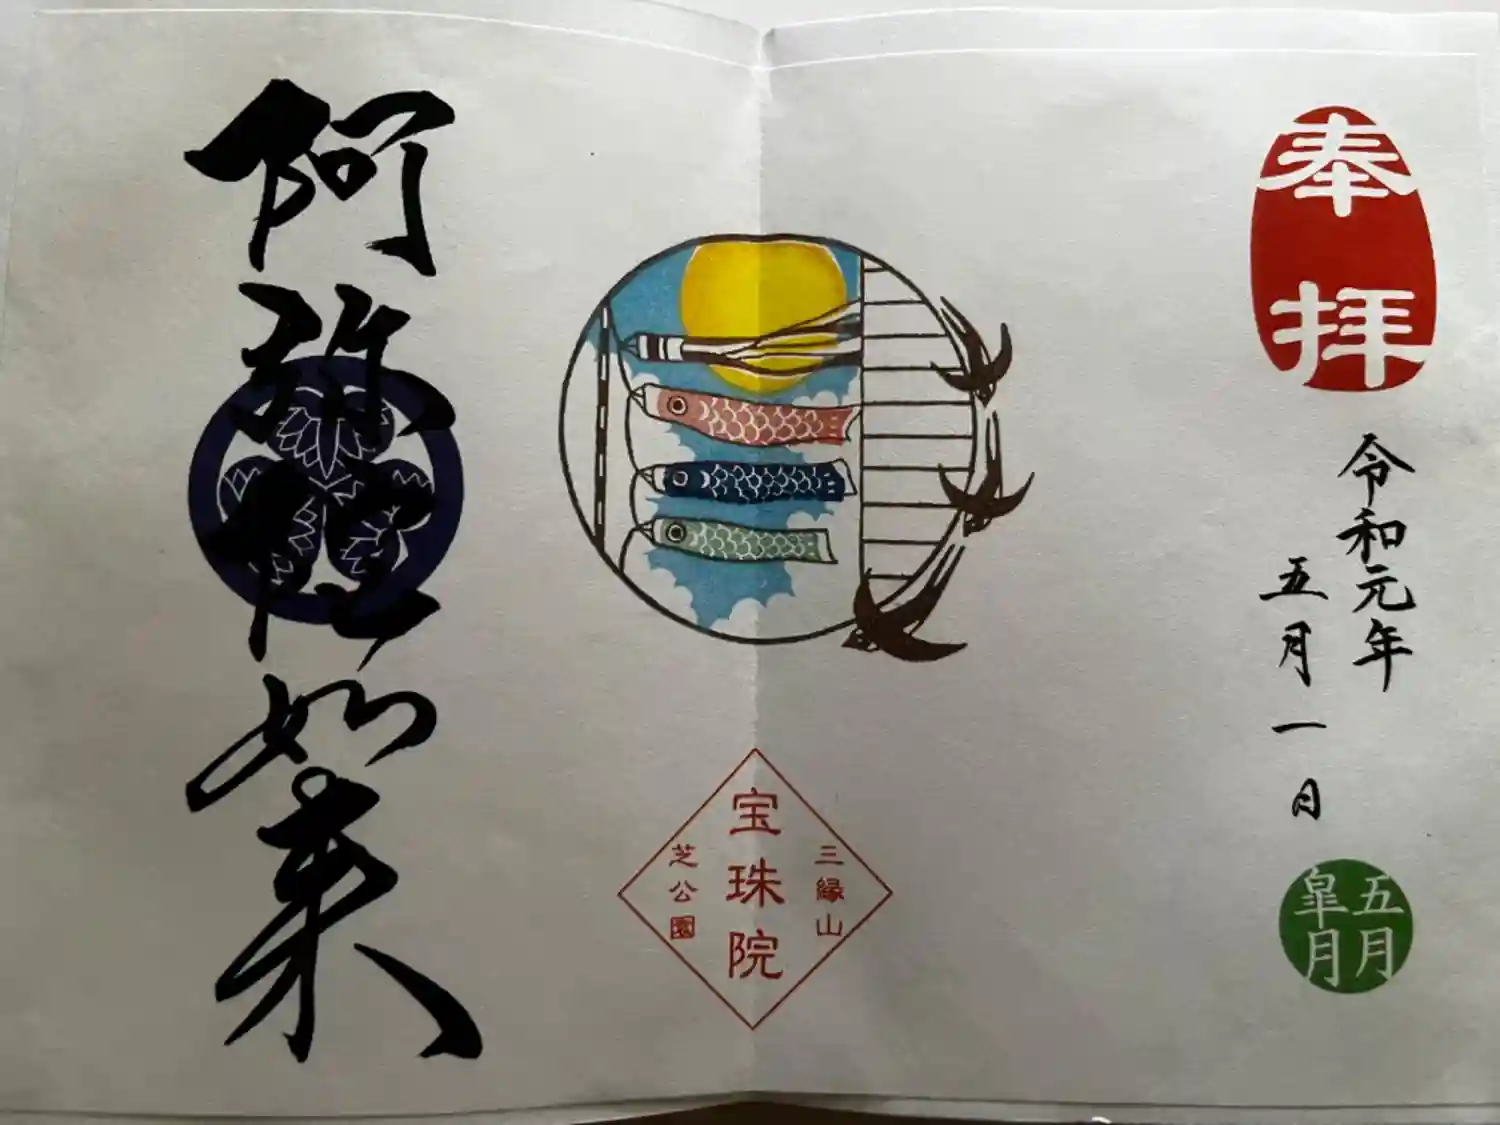 奉拝
令和元年
五月一日
五月
皐月
三縁山
宝珠院
芝公園
阿弥陀如来